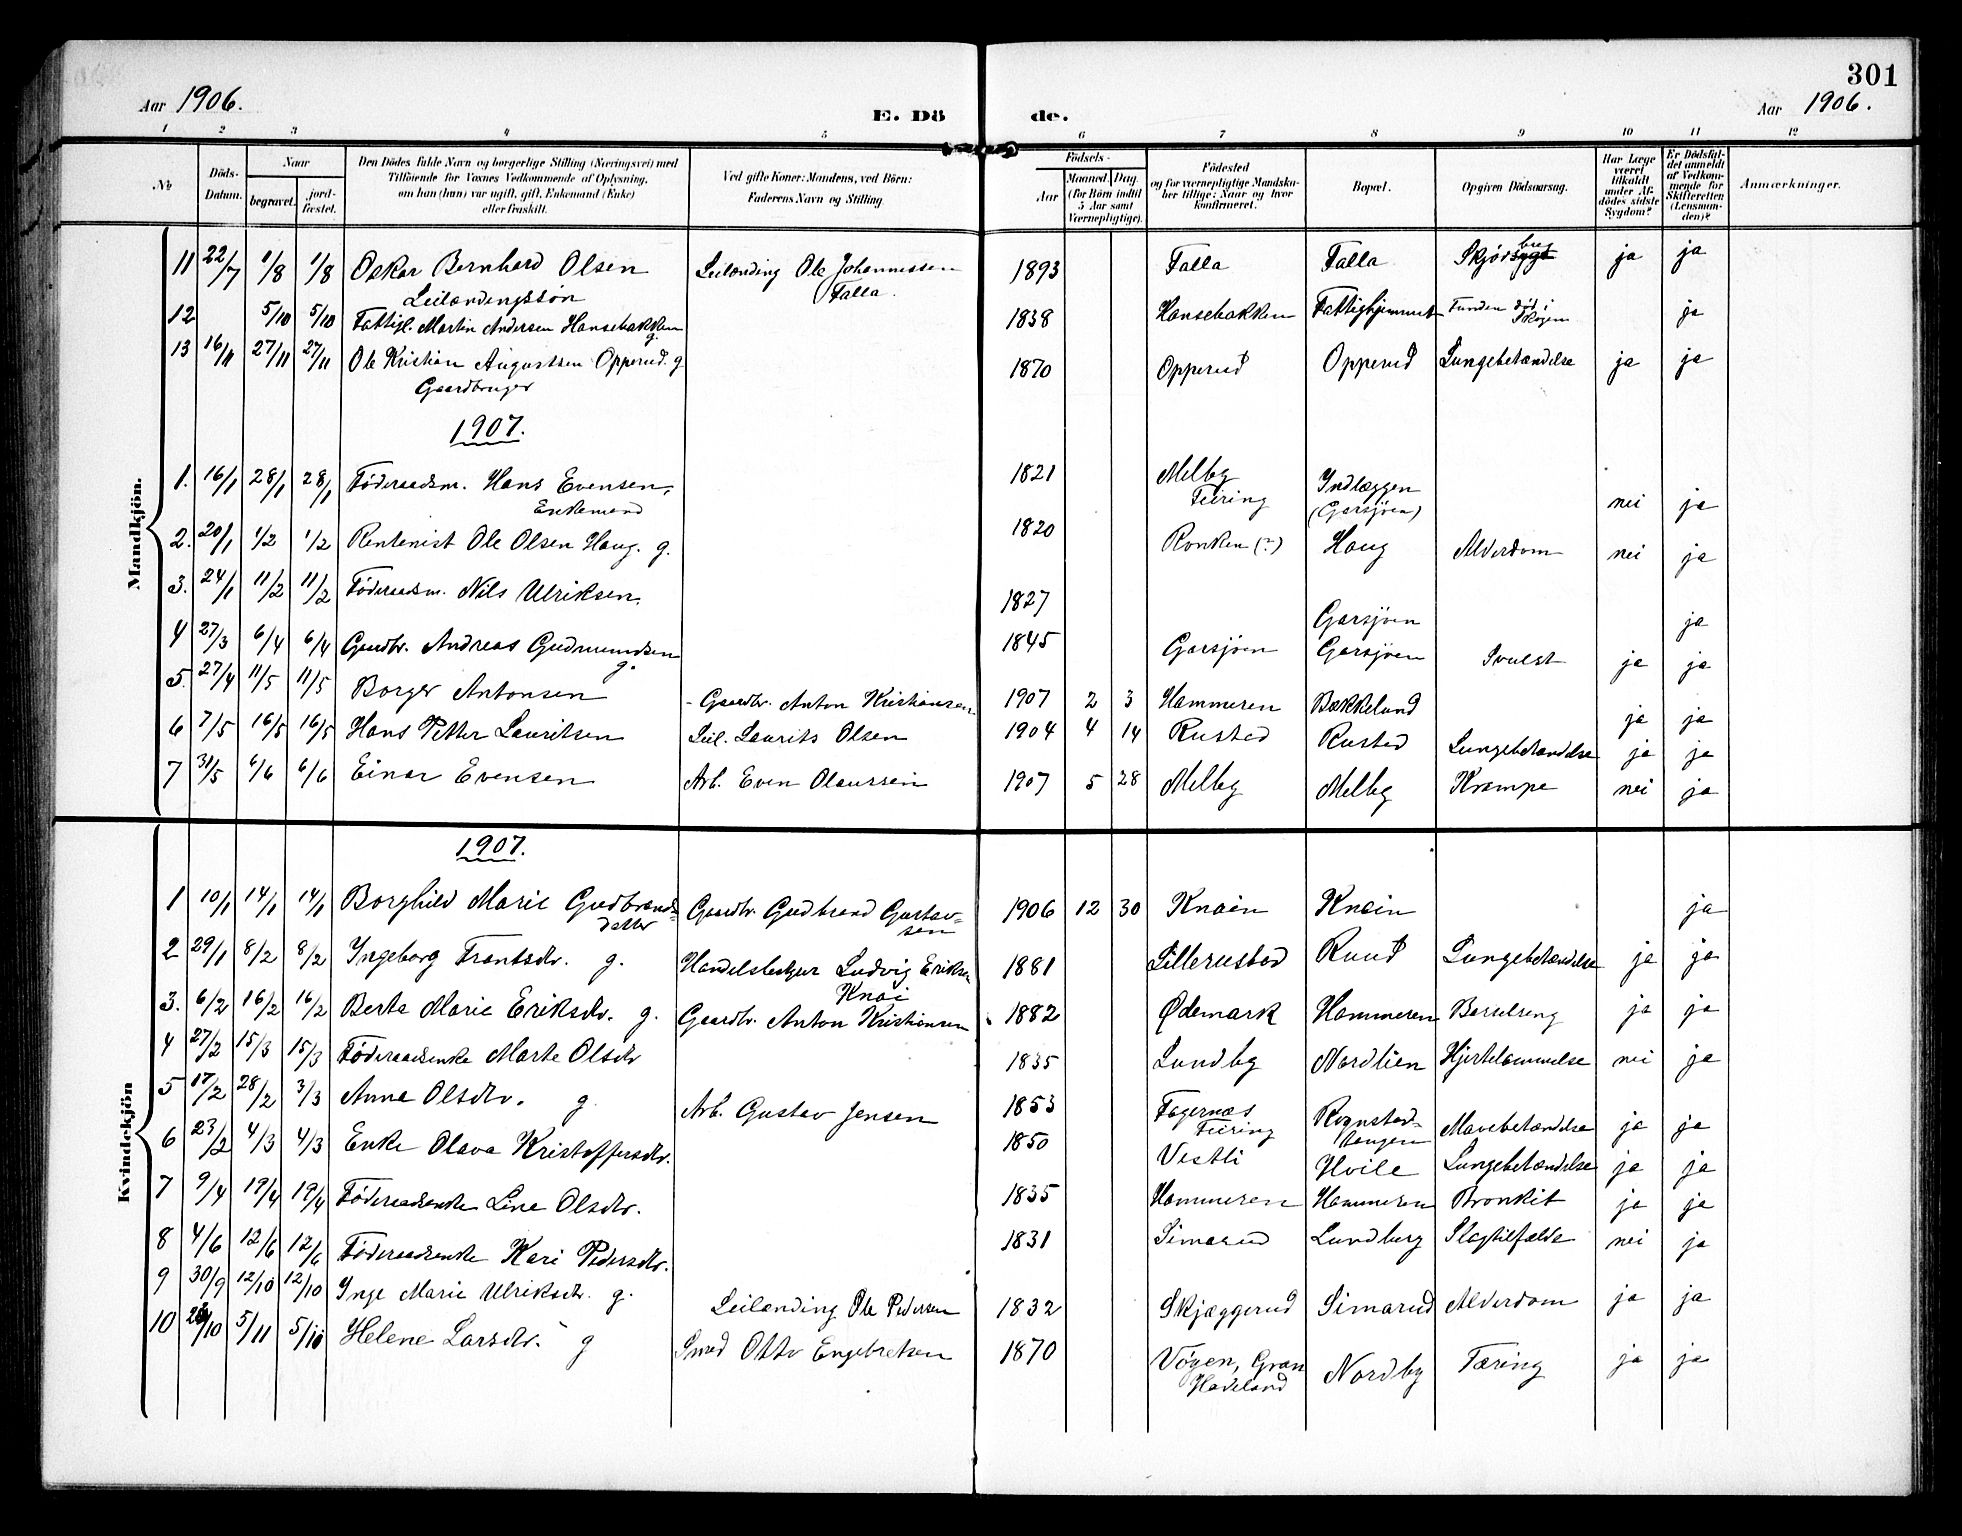 301
Aar 1906.
E. Dö de.
Aar 1906.
1 2 3 4 5 6 7 8 9 10 11 12
No
Döds-Datum.
Naar
begravet.
jordfæstet.
Den Dödes fulde Navn og borgerlige Stilling (Næringsvei) med
Tilföiende for Voxnes Vedkommende af Oplysning,
om han (hun) var ugift, gift, Enkemand (Enke)
eller fraskilt.
Ved gifte Koner: Mandens, ved Börn:
Faderens Navn og Stilling
Födsels-
Aar
Maaned. Dag.
(for Börn indtil
5 Aar samt
Værnepligtige).
Födested
og for værnepligtige Mandska-
ber tillige: Naar og hvor
konfirmeret.
Bopæl.
Opgiven Dödsaarsag.
Har Læge
været
tilkaldt
under Af-
dödes sidste
Sygdom?
Er Dödsfal-
det anmeldt
af Vedkom-
mende for
Skifteretten
(Lensman-
den)?
Anmærkninger.
Mandkjön.
11 22/7 1/8 1/8 Oskar Bernhard Olsen Leilænding Ole Johannessen 1893 Falla Falla Skjörbugsygt ja ja
Leilændingssön Falla.
12 5/10 5/10 Fattigl. Martin Andersen Hansebakken g. 1838 Hansebakken Fattighjemmet Funden död i Skogen ja
13 16/11 27/11 27/11 Ole Kristian Augustsen Opperud. g 1870 Opperud Opperud Lungebetændelse ja ja
Gaardbruger
1907.
1. 16/1 28/1 28/1 Föderaadsm. Hans Evensen, 1821 Melby Feiring Indlæggen (Garsjöen) nei ja
Enkemand
2. 20/1 1/2 1/2 Rentenist Ole Olsen Haug. g. 1820 Ronken (?) Haug Alderdom nei ja
3. 24/1 11/2 11/2 Föderaadsm. Nils Ulriksen. 1827 Garsjöen ja
4 27/3 6/4 6/4 Gaardbr. Andreas Gudmundsen g. 1845 Garsjöen Garsjöen Svulst ja ja
5. 27/4 11/5 11/5 Borger Antonsen - Gaardbr. Anton Kristiansen 1907 2 3 Hammeren Bakkelund ja ja
6 7/5 16/5 16/5 Hans Petter Lauritsen Leil. Laurits Olsen 1904 4 14 Rustad Rustad Lungebetændelse ja ja
7 31/5 6/6 6/6 Einar Evensen Arb. Even Olaussen 1907 5 28 Melby Melby Krampe nei ja
Kvindekjön
1907.
1 10/1 14/1 14/1 Borghild Marie Gudbrands- Gaardbr. Gudbrand Gustav- 1906 12 30 Knain Knain ja
datter sen
2 29/1 8/2 8/2 Ingeborg Frantsdtr. g. Handelsbestyrer Ludvig Eriksen 1881 Lillerustad Ruud Lungebetændelse ja ja
Knai
3. 6/2 16/2 16/2 Berte Marie Eriksdtr. g. Gaardbr. Anton Kristiansen 1882 Ødemark Hammeren Barselseng ja ja
4 27/2 15/3 15/3 Föderaadsenke Marte Olsdtr 1835 Lundby Nordlien Hjertelammelse nei ja
5 17/2 28/2 3/3 Anne Olsdtr. g. Arb. Gustav Jensen 1853 Fagernæs Feiring Rognstad- tangen Mavebetændelse ja ja
6 23/2 4/3 4/3 Enke Olava Kristoffersdtr. 1850 Vestli Hvile Lungebetændelse ja ja
7 9/4 19/4 19/4 Föderaadsenke Line Olsdtr. 1835 Hammeren Hammeren Bronkit ja ja
8 4/6 12/6 12/6 Föderaadsenke Kari Pedersdtr. 1831 Simarud Lundberg Slagtilfælde nei ja
9 30/9 12/10 12/10 Inge Marie Ulriksdtr. g. Leilænding Ole Pedersen 1832 Skjæggerud Simarud Alderdom ja ja
10 5/11 5/10 Helene Larsdtr. g Smed Otto Engebretsen 1870 Vøyen, Gran Hadeland Nordby Tæring ja ja